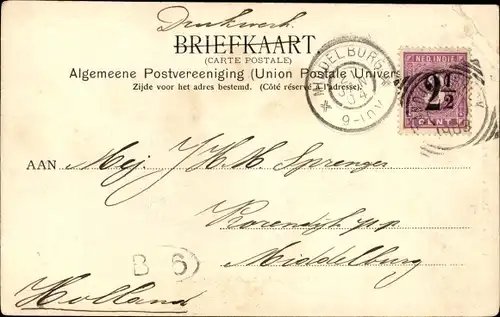 Drukwerk
BRIEFKAART
(CARTE POSTALE)
Algemeene Postvereeniging (Union Postale Univers
Zijde voor het adres bestemd. (Côté réservé à l'adresse.)
MIDDELBURG
9-10V
NED. INDIE
2 1/2
CENT
AAN Mej. J H M Sprenger
Middelburg
B 6
Holland